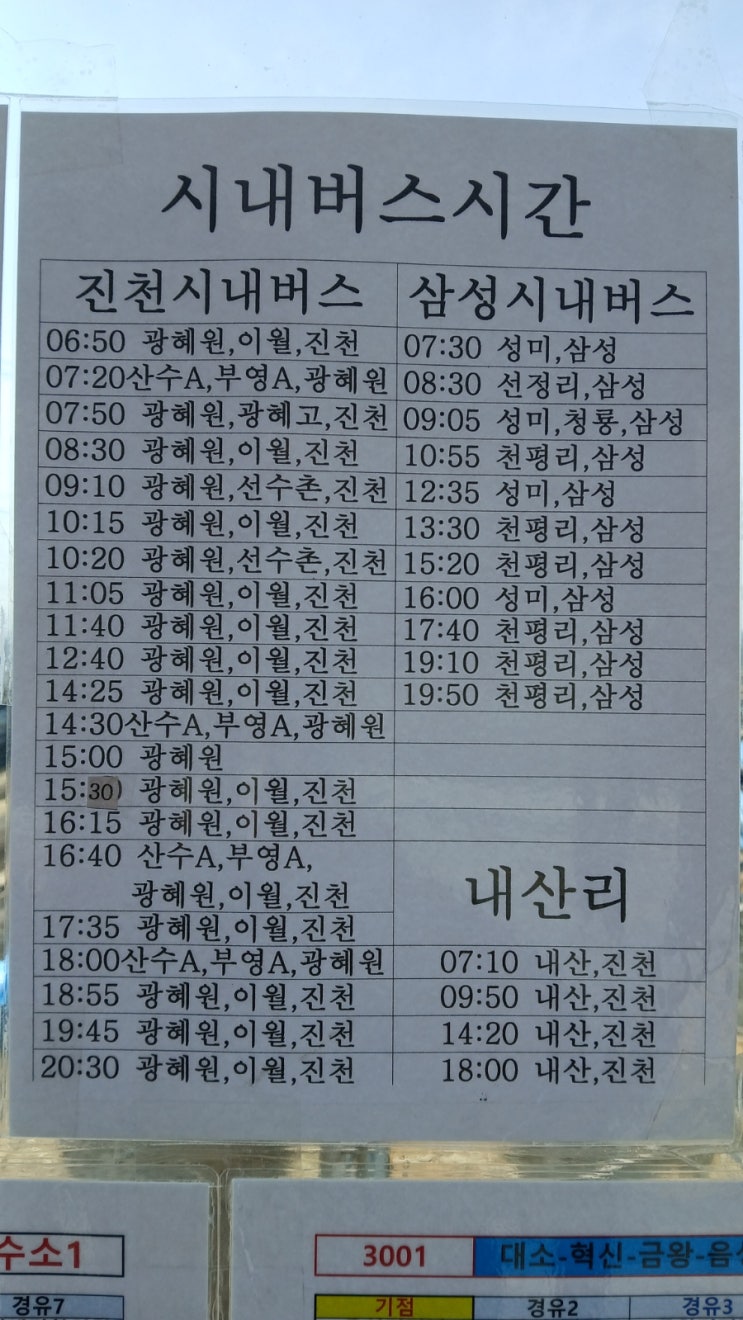 시내버스시간
진천시내버스
06:50 광혜원,이월,진천
07:20산수A,부영A,광혜원
07:50 광혜원,광혜고,진천
08:30 광혜원,이월,진천
09:10 광혜원,선수촌,진천
10:15 광혜원,이월,진천
10:20 광혜원,선수촌,진천
11:05 광혜원,이월,진천
11:40 광혜원,이월,진천
12:40 광혜원,이월,진천
14:25 광혜원,이월,진천
14:30산수A,부영A,광혜원
15:00 광혜원
15:30 광혜원,이월,진천
16:15 광혜원,이월,진천
16:40 산수A,부영A,
광혜원,이월,진천
17:35 광혜원,이월,진천
18:00산수A,부영A,광혜원
18:55 광혜원,이월,진천
19:45 광혜원,이월,진천
20:30 광혜원,이월,진천
삼성시내버스
07:30 성미,삼성
08:30 선정리,삼성
09:05 성미,청룡,삼성
10:55 천평리,삼성
12:35 성미,삼성
13:30 천평리,삼성
15:20 천평리,삼성
16:00 성미,삼성
17:40 천평리,삼성
19:10 천평리,삼성
19:50 천평리,삼성
내산리
07:10 내산,진천
09:50 내산,진천
14:20 내산,진천
18:00 내산,진천
수소1
경유7
3001 대소-혁신-금왕-음성
기점 경유2 경유3